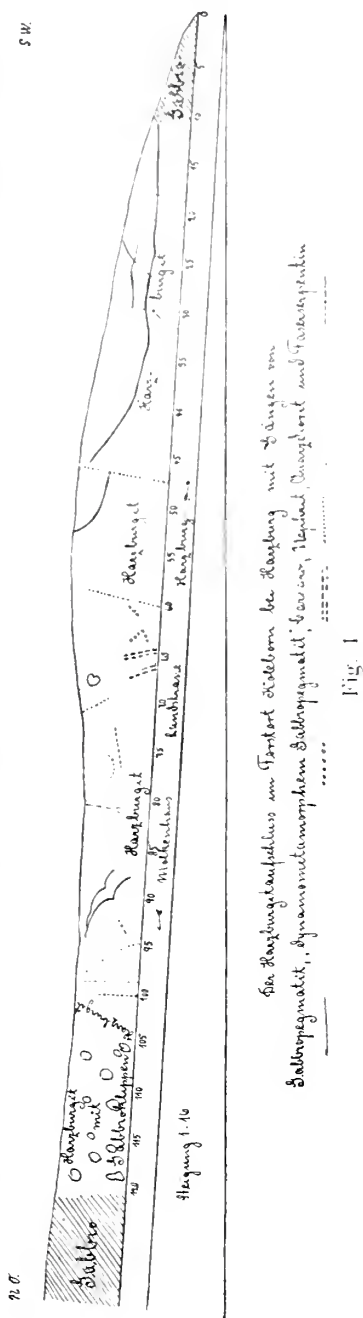 N.O.
S.W.
Gabbro
Harzburgit
mit
Gabbroklippen
Harzburgit
Harzburgit
Harzburgit
Harz-
burgit
Gabbro
120 115 110 105 100 95 90 85 80 75 70 65 60 55 50 45 40 35 30 25 20 15 10 5 0
Molkenhaus
Rundstrasse
Harzburg
Steigung 1:16
Der Harzburgitaufschluss im Forstort Koleborn bei Harzburg mit Gängen von
Gabbropegmatit, „dynamometamorphem Gabbropegmatit", Nephrit, Quarzphorit und Faserserpentin
Fig. 1